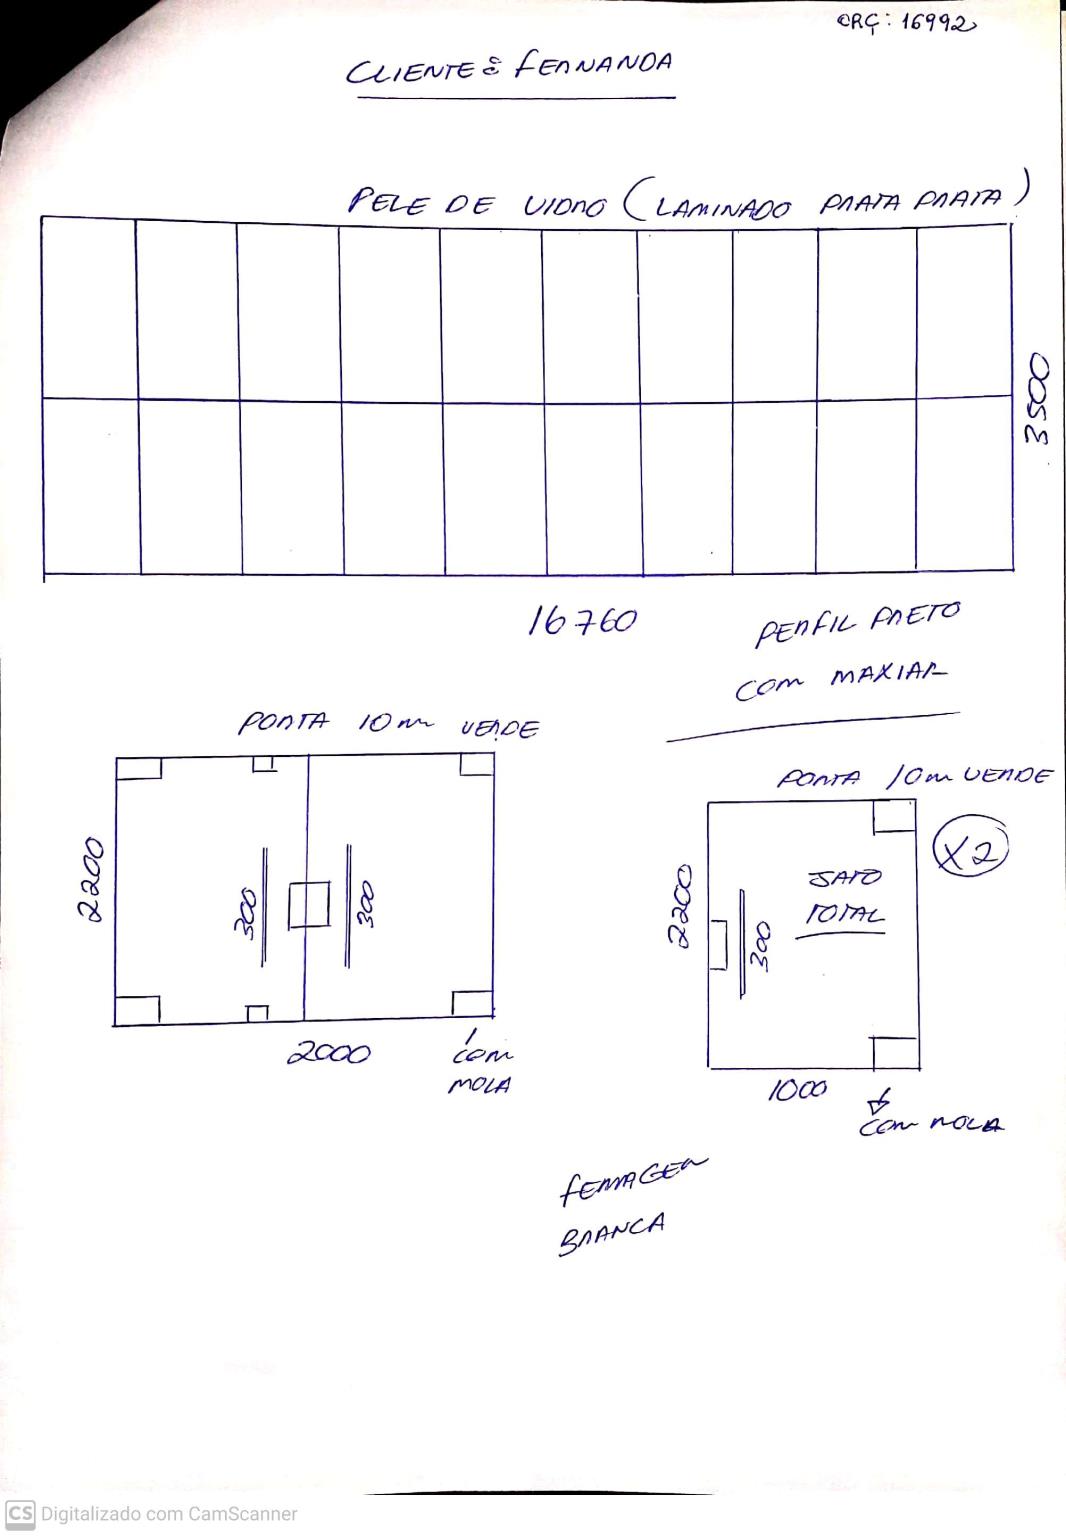 ORÇ: 16992
CLIENTE: FERNANDA
PELE DE VIDRO (LAMINADO PRATA PRATA)
3500
16760
PERFIL PRETO
COM MAXIAR
PORTA 10mm VERDE
2200
300
300
2000
COM
MOLA
PORTA 10mm VERDE
X2
JATO
TOTAL
2200
300
1000
COM MOLA
FERRAGEM
BRANCA
CS Digitalizado com CamScanner